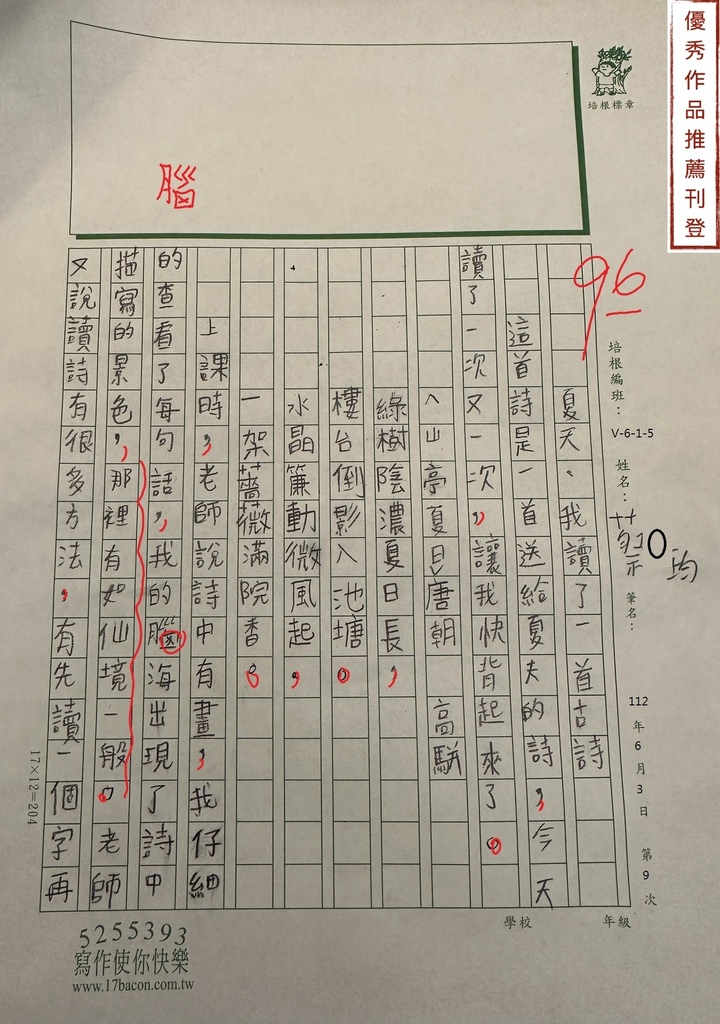 優秀作品推薦刊登
培根標章
腦
96
培根編班：
V-6-1-5
姓名：
均
筆名：
112年6月3日 第9次
夏天。我讀了一首古詩
這首詩是一首送給夏天的詩，今天
讀了一次又一次，讓我快背起來了。
<山亭夏日>唐朝 高駢
綠樹陰濃夏日長，
樓台倒影入池塘。
水晶簾動微風起，
一架薔薇滿院香。
上課時，老師說詩中有畫，我仔細
的查看了每句話，我的腦海出現了詩中
描寫的景色，那裡有如仙境一般。老師
又說讀詩有很多方法，有先讀一個字再
17×12=204
學校 年級
5255393
寫作使你快樂
www.17bacon.com.tw